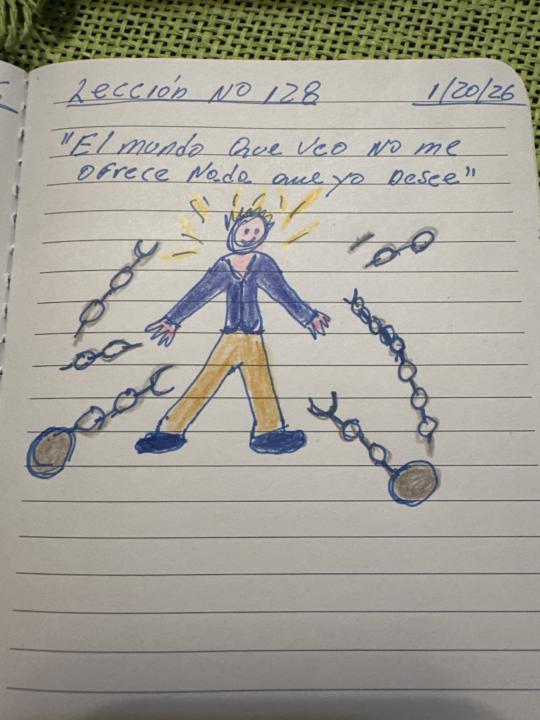 Lección No 128 1/20/26
"El mundo que veo no me
ofrece nada que yo desee"